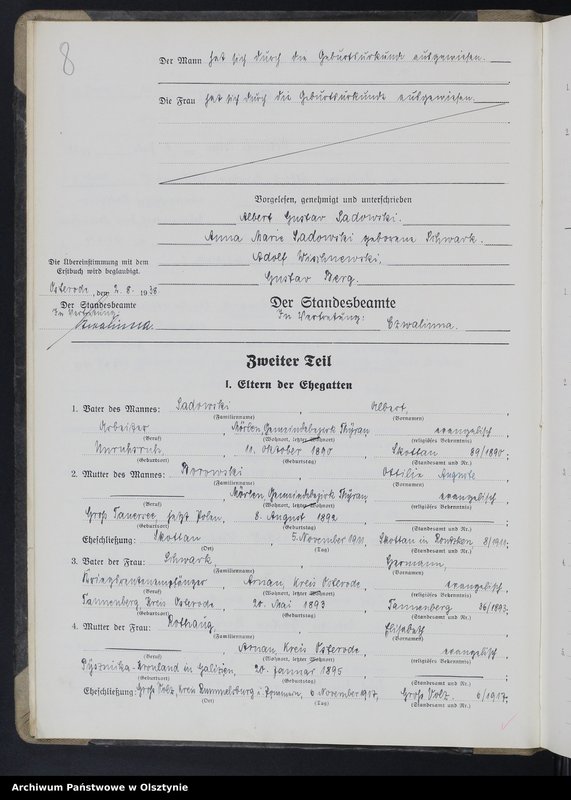 8
Der Mann hat sich durch die Geburtsurkunde ausgewiesen.
Die Frau hat sich durch die Geburtsurkunde ausgewiesen.
Vorgelesen, genehmigt und unterschrieben
Albert Gustav Sadowski.
Anna Marie Sadowski geborene Schwark.
Adolf Wischnewski.
Gustav Berg.
Die Übereinstimmung mit dem
Erstbuch wird beglaubigt.
Osterode, den 2. 8. 1938
Der Standesbeamte
In Vertretung
Czwalinna
Der Standesbeamte
In Vertretung: Czwalinna.
Zweiter Teil
I. Eltern der Ehegatten
1. Vater des Mannes: Sadowski, Albert,
(Familienname) (Vornamen)
Arbeiter Mörlen, Gemeindebezirk Thyrau evangelisch
(Beruf) (Wohnort, letzter Wohnort) (religiöses Bekenntnis)
10. Oktober 1890 Skottau 89/1890
(Geburtsort) (Geburtstag) (Standesamt und Nr.)
2. Mutter des Mannes: Borowski Ottilie Auguste
(Familienname) (Vornamen)
Mörlen, Gemeindebezirk Thyrau evangelisch
(Beruf) (Wohnort, letzter Wohnort) (religiöses Bekenntnis)
Groß jetzt Polen, 8. August 1892
(Geburtsort) (Geburtstag) (Standesamt und Nr.)
Eheschließung: Skottau 5. November 1911 Skottau in 8/1911
(Ort) (Tag) (Standesamt und Nr.)
3. Vater der Frau: Schwark Hermann,
(Familienname) (Vornamen)
Kriegsrentenempfänger Arnau, Kreis Osterode evangelisch
(Beruf) (Wohnort, letzter Wohnort) (religiöses Bekenntnis)
Tannenberg Kreis Osterode, 20. Mai 1893 Tannenberg 36/1893
(Geburtsort) (Geburtstag) (Standesamt und Nr.)
4. Mutter der Frau: Elisabeth
(Familienname) (Vornamen)
Arnau, Kreis Osterode evangelisch
(Beruf) (Wohnort, letzter Wohnort) (religiöses Bekenntnis)
in Galizien, 20. Januar 1895
(Geburtsort) (Geburtstag) (Standesamt und Nr.)
Eheschließung: Groß Volz, Kreis Rummelsburg i. Pommern, 6. November 1917, Groß Volz 6/1917
(Ort) (Tag) (Standesamt und Nr.)
Archiwum Państwowe w Olsztynie